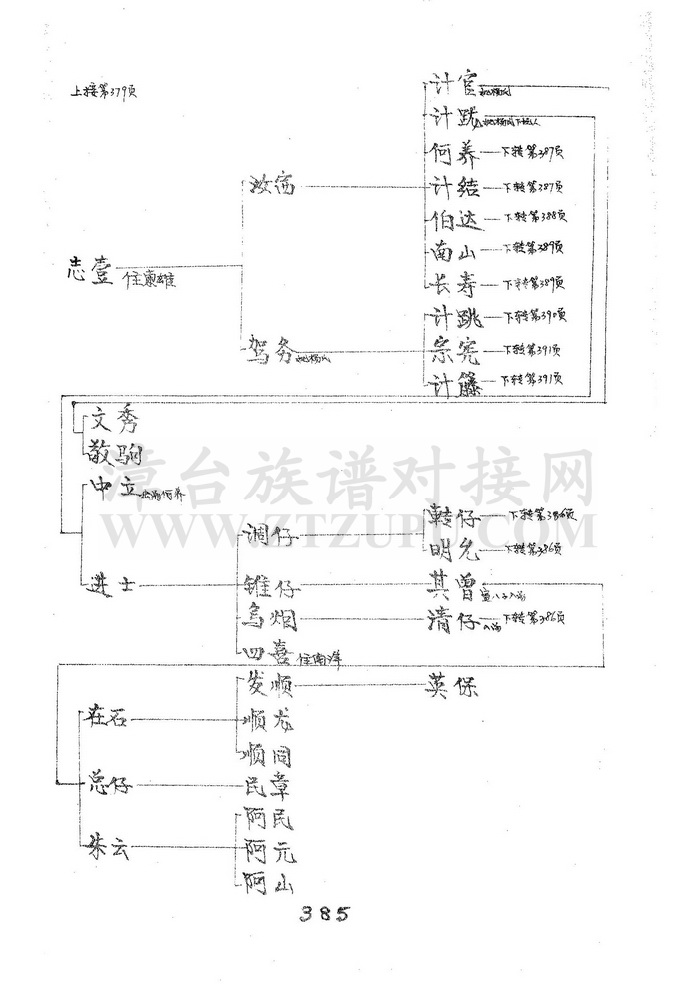 上接第379页
计官
计跳
何养 下转第387页
汝宙
计结 下转第387页
伯达 下转第388页
南山 下转第389页
志壹 住康雄
长寿 下转第389页
计跳 下转第390页
驾务 妣杨氏
宗宪 下转第391页
计籐 下转第391页
文秀
敬驹
中立
漳台族谱对接网
WWW.ZTZUPU.COM
调仔
乾仔 下转第386页
明允 下转第386页
进士
锥仔
其曾
乌烟
清仔 下转第386页
四喜 住南洋
发顺
英保
在石
顺龙
顺同
总仔
民章
阿民
朱云
阿元
阿山
385